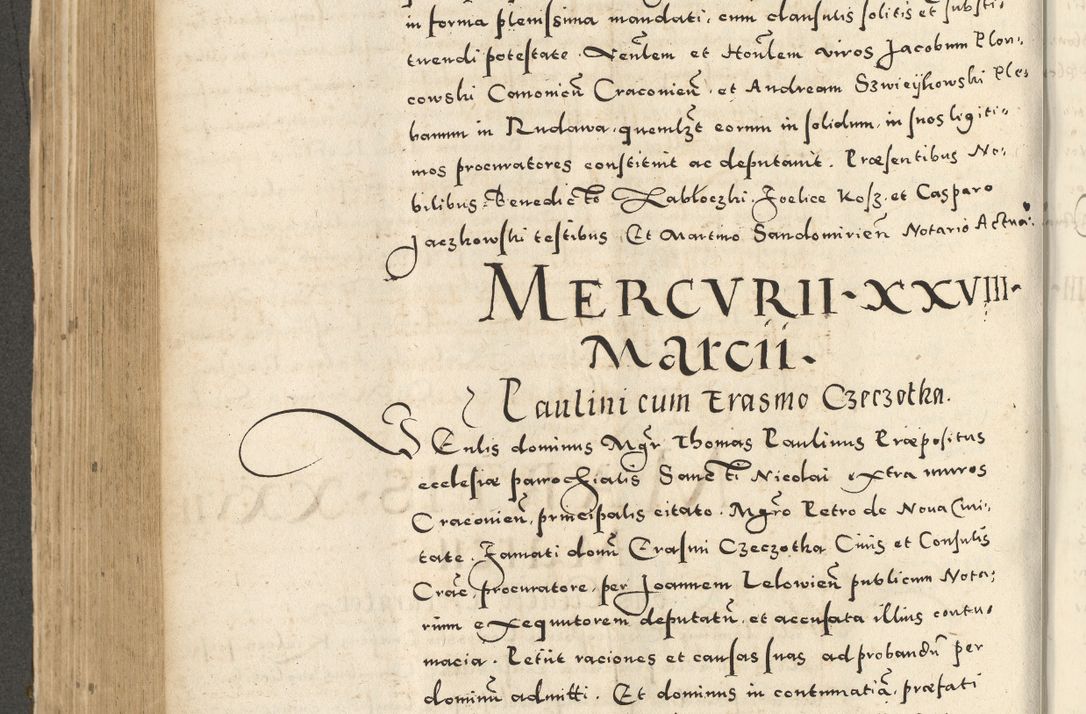 in forma plenissima mandati, cum clausulis solitis et substi-
tuendi potestate. Venlem et Honlem viros Jacobum Plon-
cowski Canonicũ Craconieñ. et Andream Szwieykowski Ple-
banum in Rudawa, quemlzt eorum in solidum, in suos legiti-
mos procuratores constituit ac deputauit. Præsentibus No-
bilibus, Benedicto Zabłoczki. Foelice Kosz. et Casparo
Jaczkowski testibus. Et Martino Sandomirieñ Notario Actuã.
MERCVRII. XXVIII.
Marcii.
Paulini cum Erasmo Czeczotka.
VEnlis dominus Mgr Thomas Paulinus Præpositus
ecclesiæ parochialis Sancti Nicolai extra muros
Craconieñ, principalis citato. Mgro Petro de Noua Ciui-
tate. Famati domĩ Erasmi Czeczotka Ciuis et Consulis
Crac̃, procuratore, per Joannem Lelowieñ publicum Nota-
rium exequutorem deputatũ. et accusata illius contu-
macia. Petiit raciones et causas suas ad probandũ per
dominũ admitti. Et dominus in contumatiã, præfati